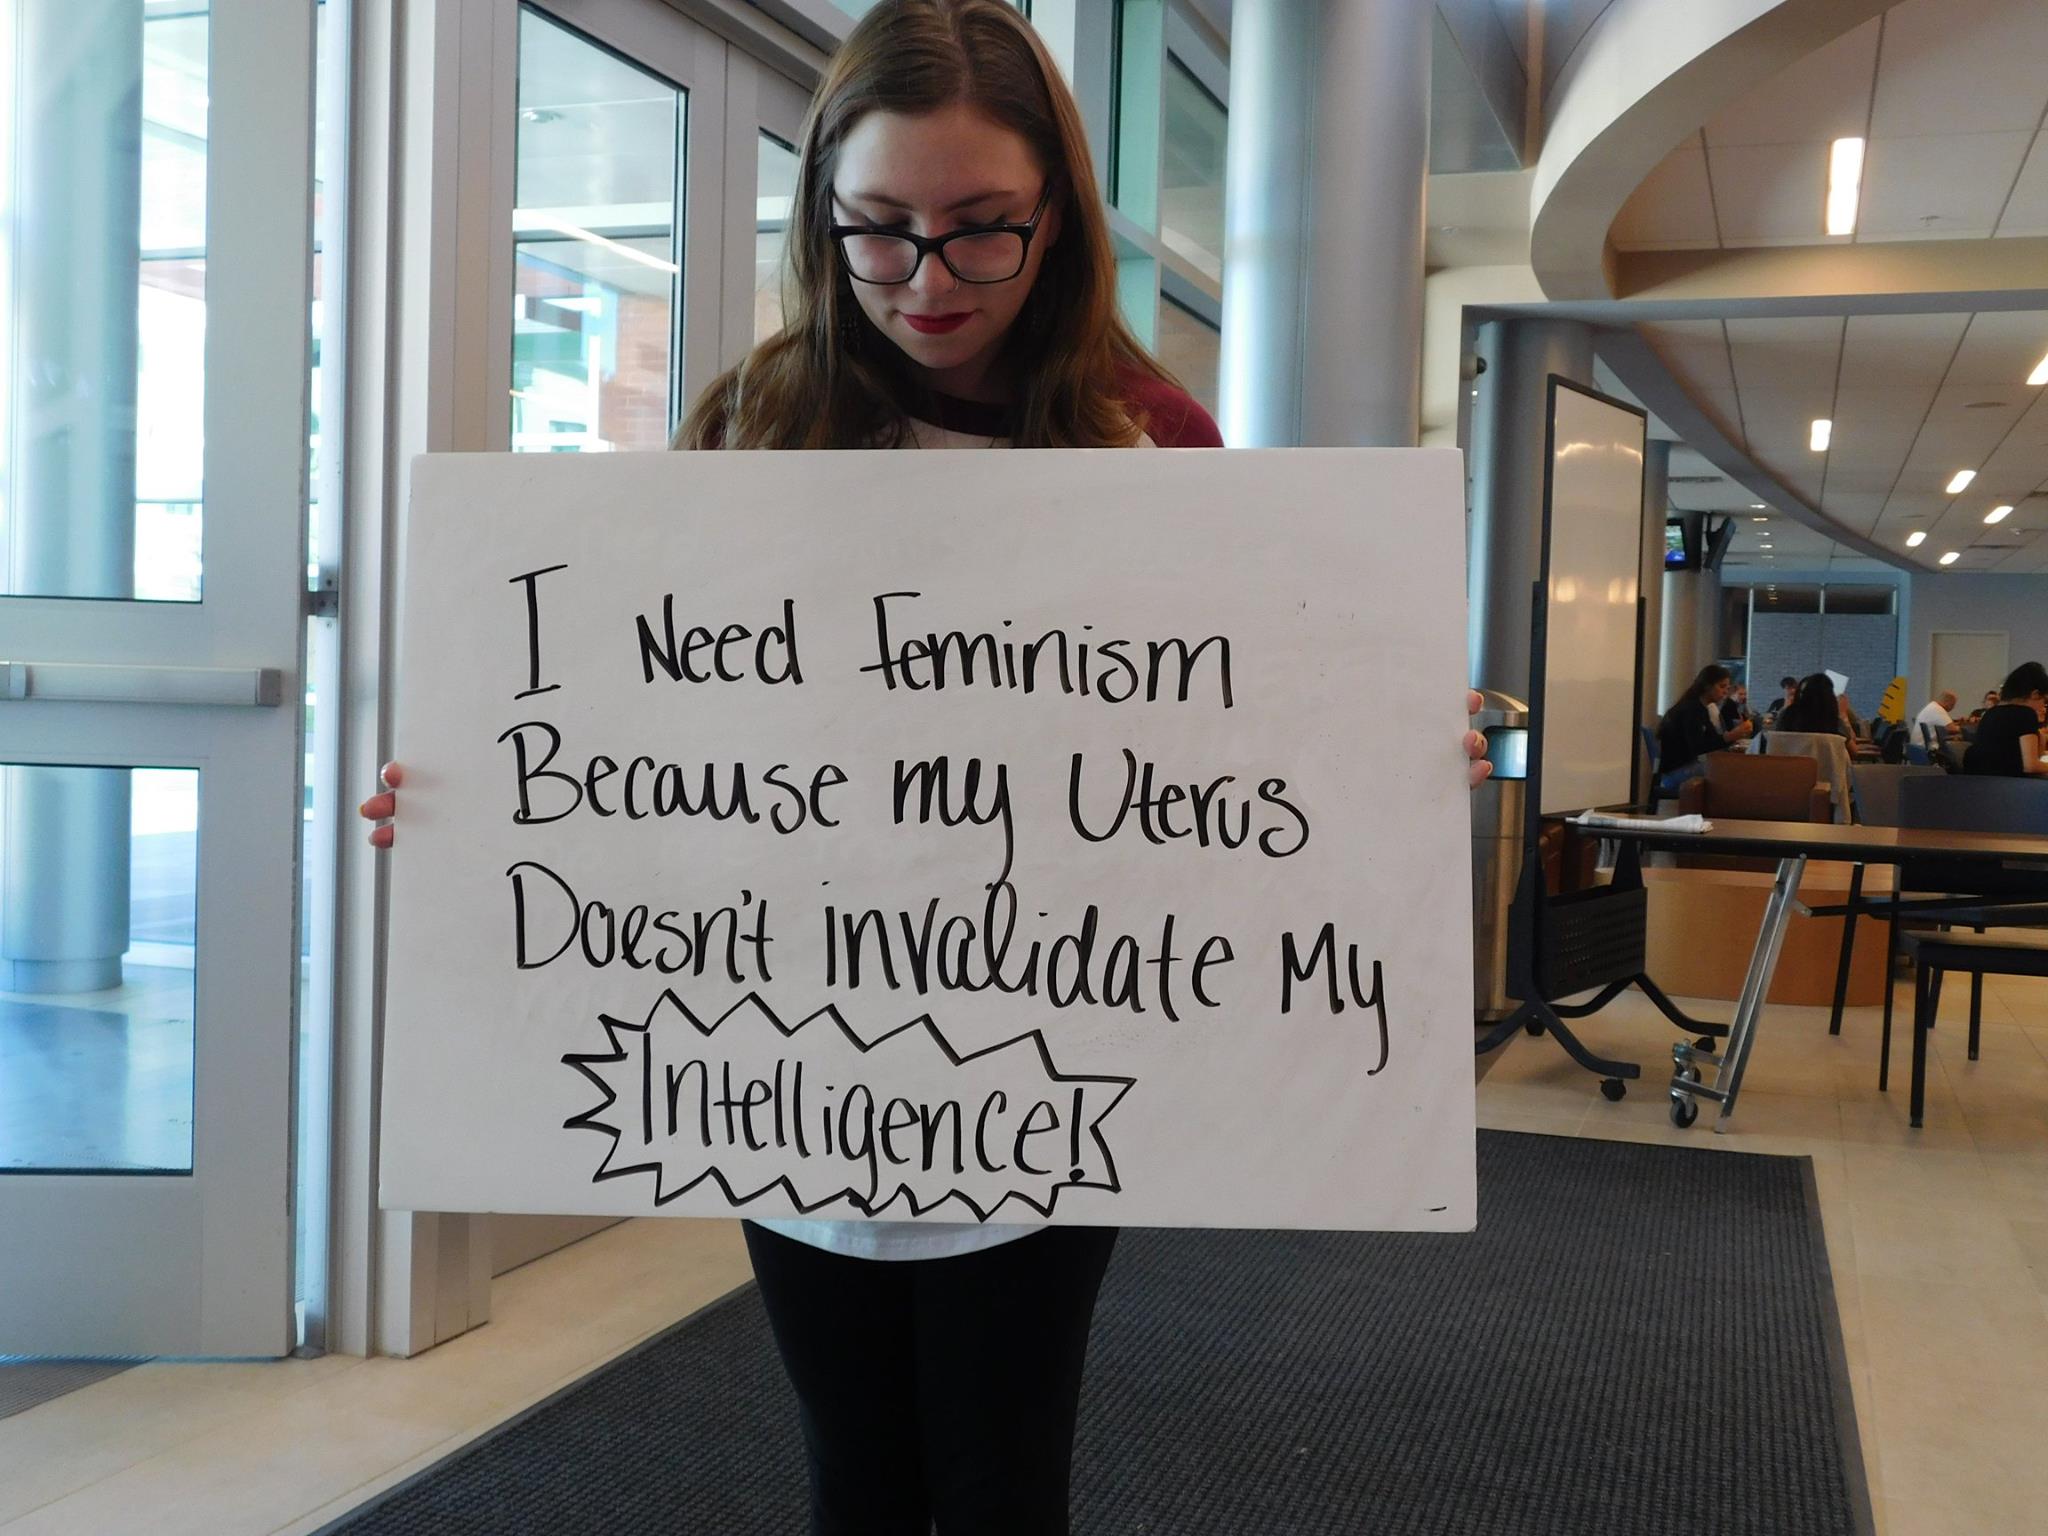 I Need Feminism
Because my Uterus
Doesn't invalidate My
Intelligence!